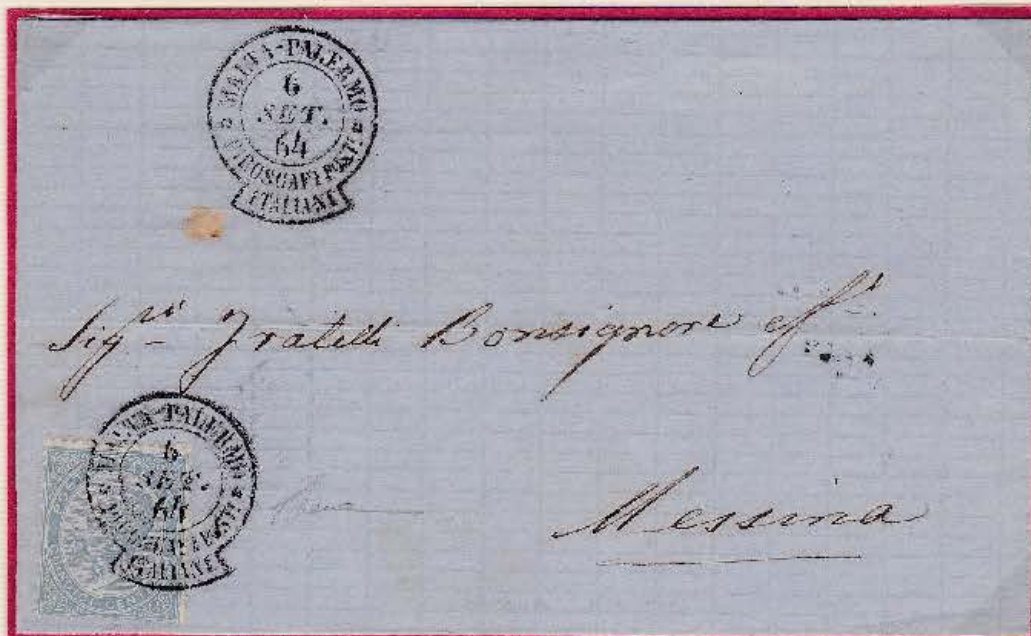 MALTA-PALERMO
6
SET.
64
PIROSCAFI POST!
ITALIANI
Sig.ri Fratelli Bonsignore
Messina
MALTA-PALERMO
6
SET.
64
PIROSCAFI POST!
ITALIANI